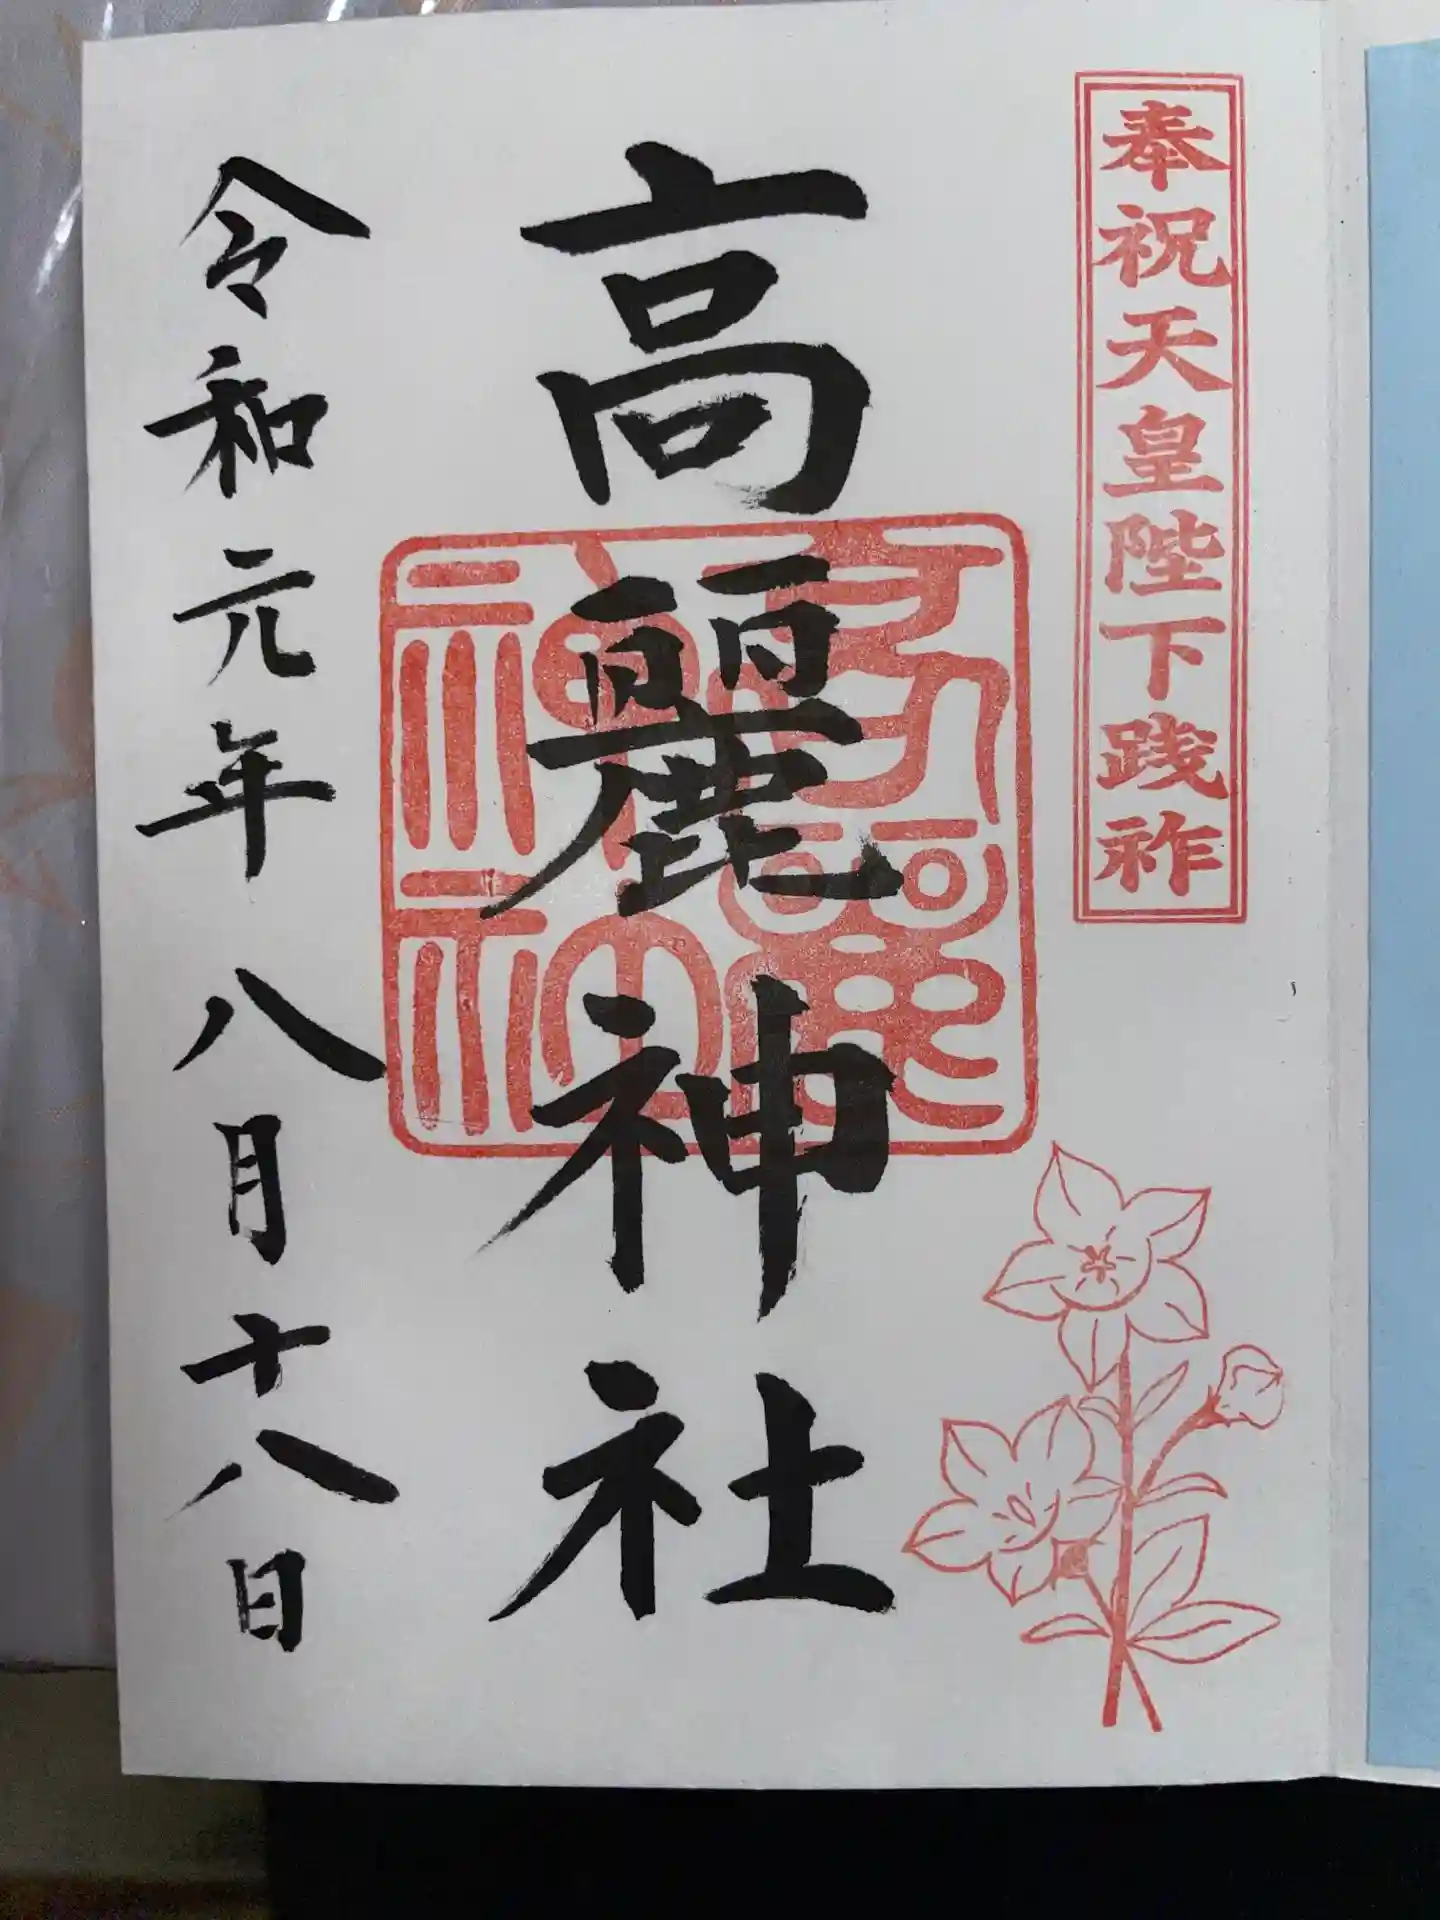 奉祝天皇陛下践祚
高麗神社
高麗神社
令和元年八月十八日